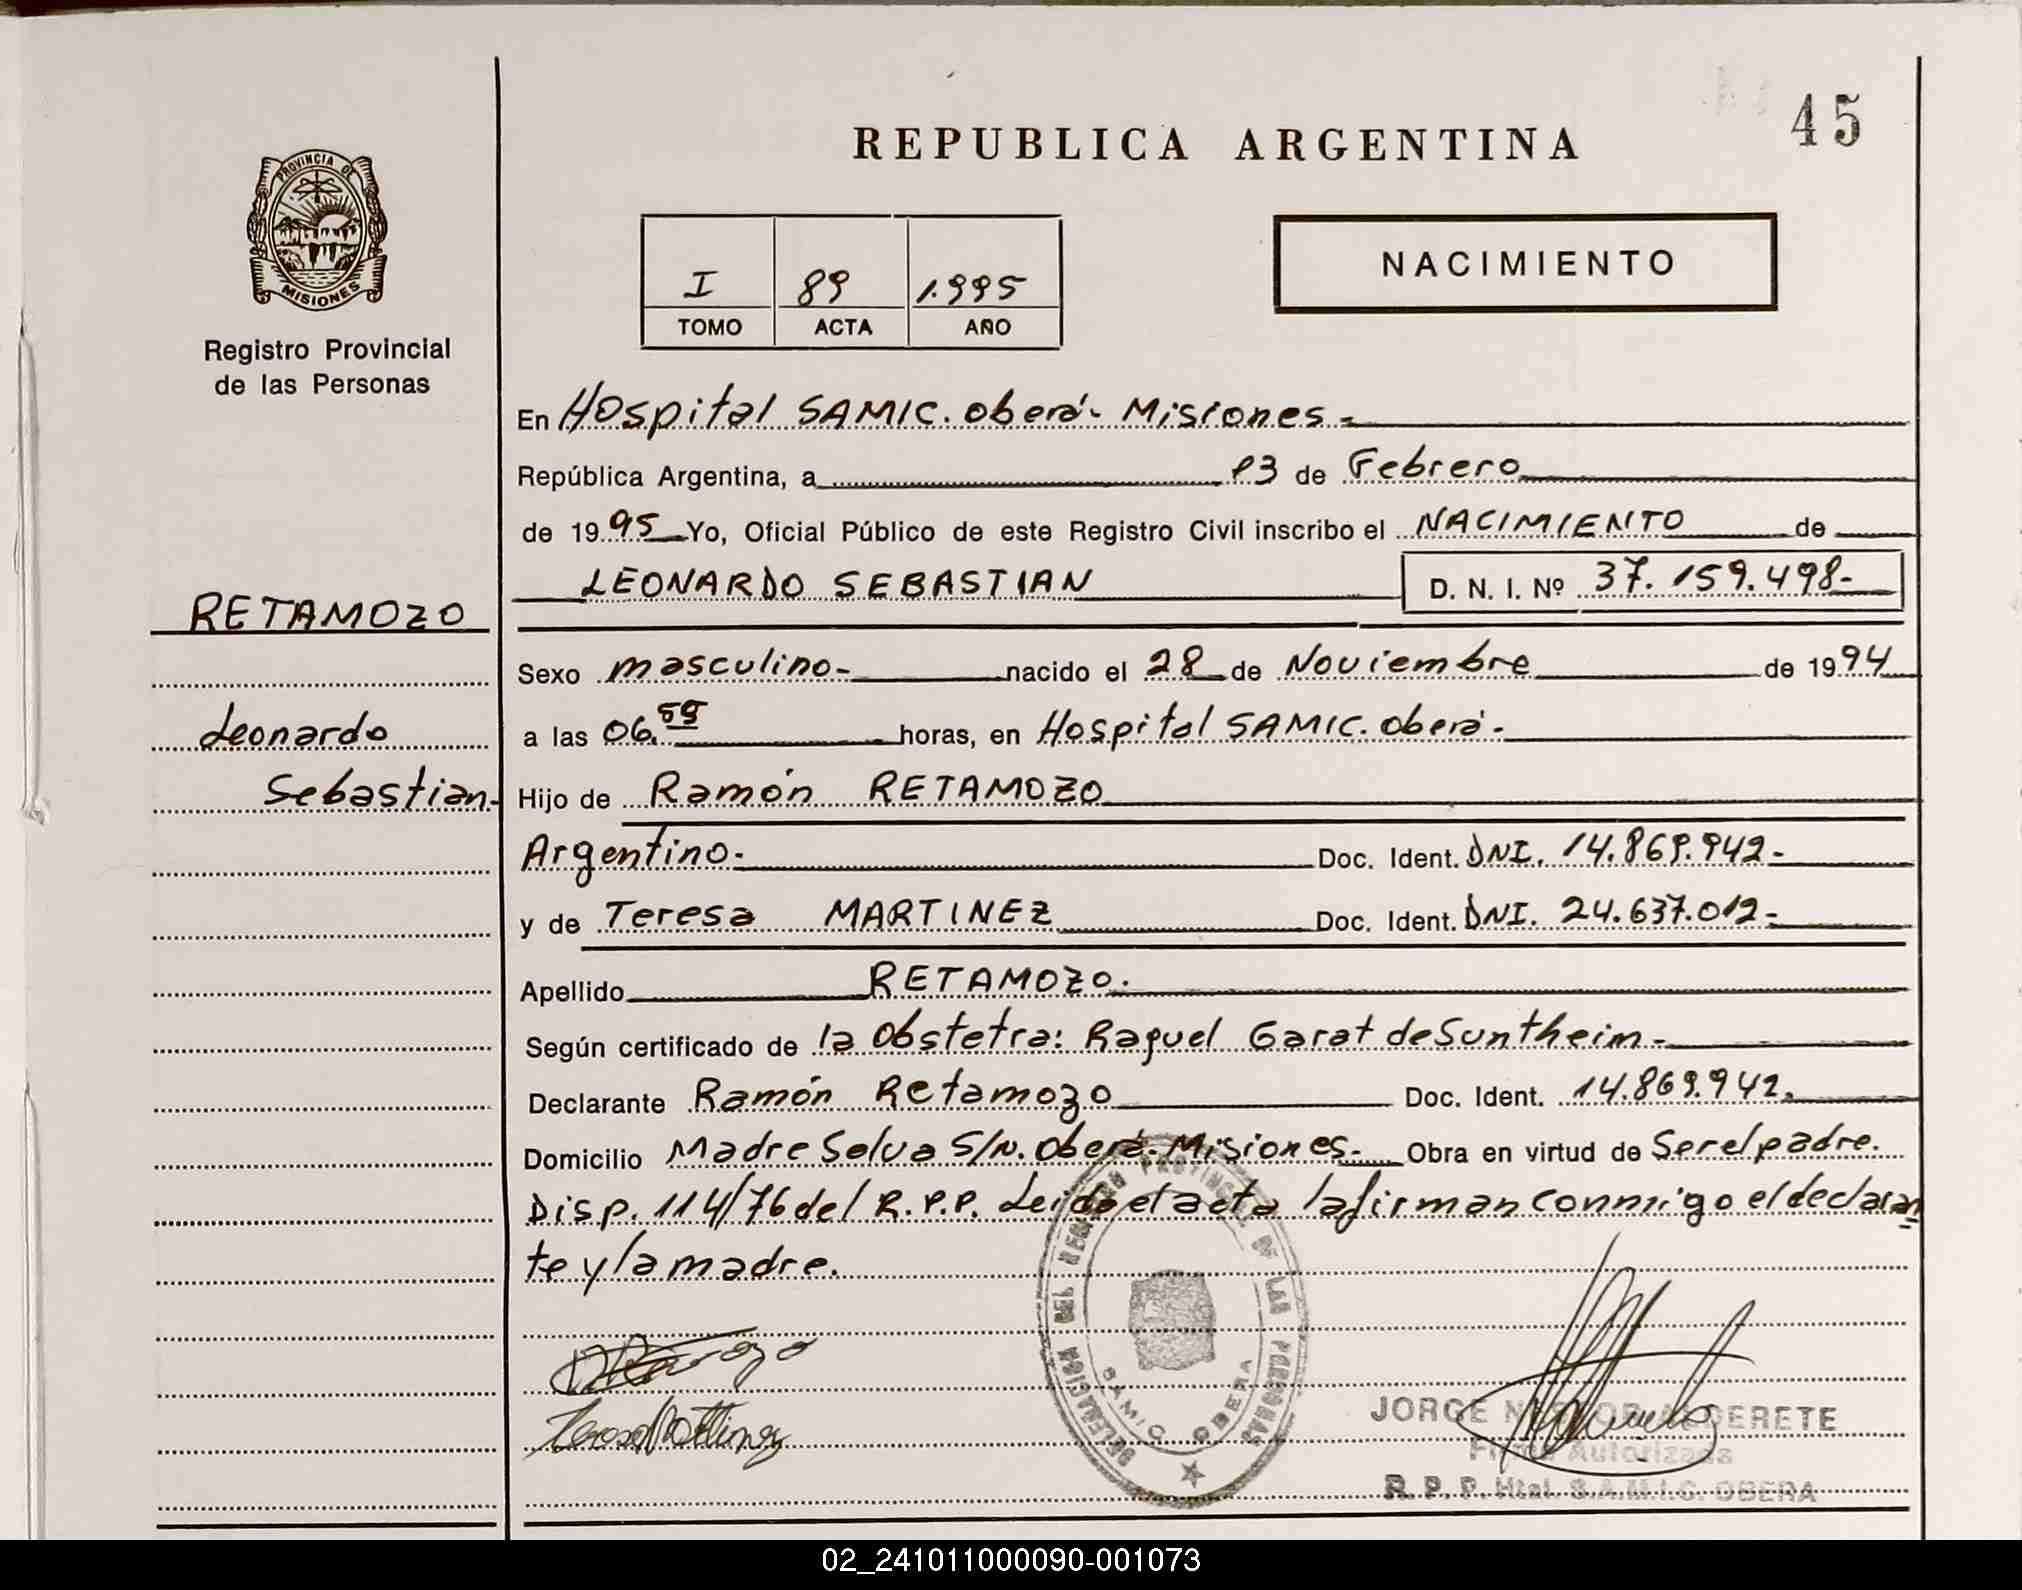 45
REPUBLICA ARGENTINA
PROVINCIA DE
MISIONES
Registro Provincial
de las Personas
I 89 1.995
TOMO ACTA AÑO
NACIMIENTO
En Hospital SAMIC. Oberá- Misiones.-
República Argentina, a 13 de Febrero
de 1995 Yo, Oficial Público de este Registro Civil inscribo el NACIMIENTO de
LEONARDO SEBASTIAN D. N. I. Nº 37.159.498-
RETAMOZO
Leonardo
Sebastian-
Sexo masculino- nacido el 28 de Noviembre de 1994
a las 06.55 horas, en Hospital SAMIC. Oberá-
Hijo de Ramón RETAMOZO
Argentino- Doc. Ident. DNI. 14.869.942-
y de Teresa MARTINEZ Doc. Ident. DNI. 24.637.012-
Apellido RETAMOZO.
Según certificado de la Obstetra: Raquel Garat de Suntheim-
Declarante Ramón Retamozo Doc. Ident. 14.869.942.
Domicilio Madre Selva S/N. Oberá-Misiones- Obra en virtud de Ser el padre.
Disp. 114/76 del R.P.P. Leida el acta la firman conmigo el declaran
te y la madre.
DELEGACION DEL REGISTRO PROVINCIAL DE LAS PERSONAS
SAMIC OBERA
Teresa Martinez
JORGE NESTOR ALDERETE
Firma Autorizada
R. P. P. Htal. S.A.M.I.C. OBERA
02_241011000090-001073